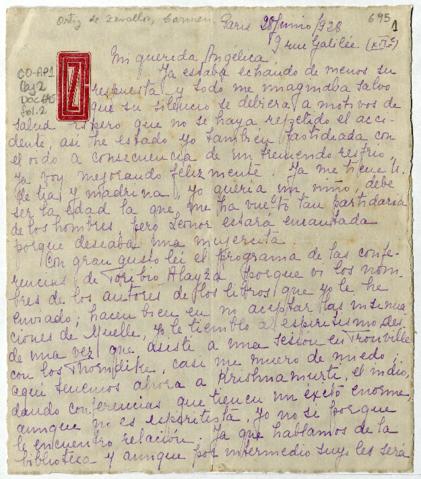 Ortiz de Zevallos, Carmen
695
1
Paris 28/junio/928
9 rue Galilée
Mi querida Angélica:
CO-AP1
Caj 2
Doc 695
fol. 2
Ya estaba echando de menos su
respuesta y todo me imaginaba salvo
que su silencio se debiera a motivos de
salud. Espero que no se haya repetido el acci-
dente, así he estado yo también fastidiada con
el oído a consecuencia de un tremendo resfrío,
ya voy mejorando felizmente. Ya me tiene U.
de tía y madrina, yo quería un niño, debe
ser la edad la que me ha vuelto tan partidaria
de los hombres, pero Leonor estará encantada
porque deseaba una mujercita.
Con gran gusto leí el programa de las confe-
rencias de Toribio Alayza porque vi los nom-
bres de los autores de los libros que yo le he
enviado; hacen bien en no aceptar las insinua
ciones de Muelle, yo le tiemblo al espiritismo, des
de una vez que asistí a una session en Trouville
con los Thorndike, casi me muero de miedo;
aquí tenemos ahora a Krishnamurti, el indio,
dando conferencias que tienen un éxito enorme,
aunque no es espiritista, yo no se porque
le encuentro relación. Ya que hablamos de la
biblioteca y aunque por intermedio suyo les será